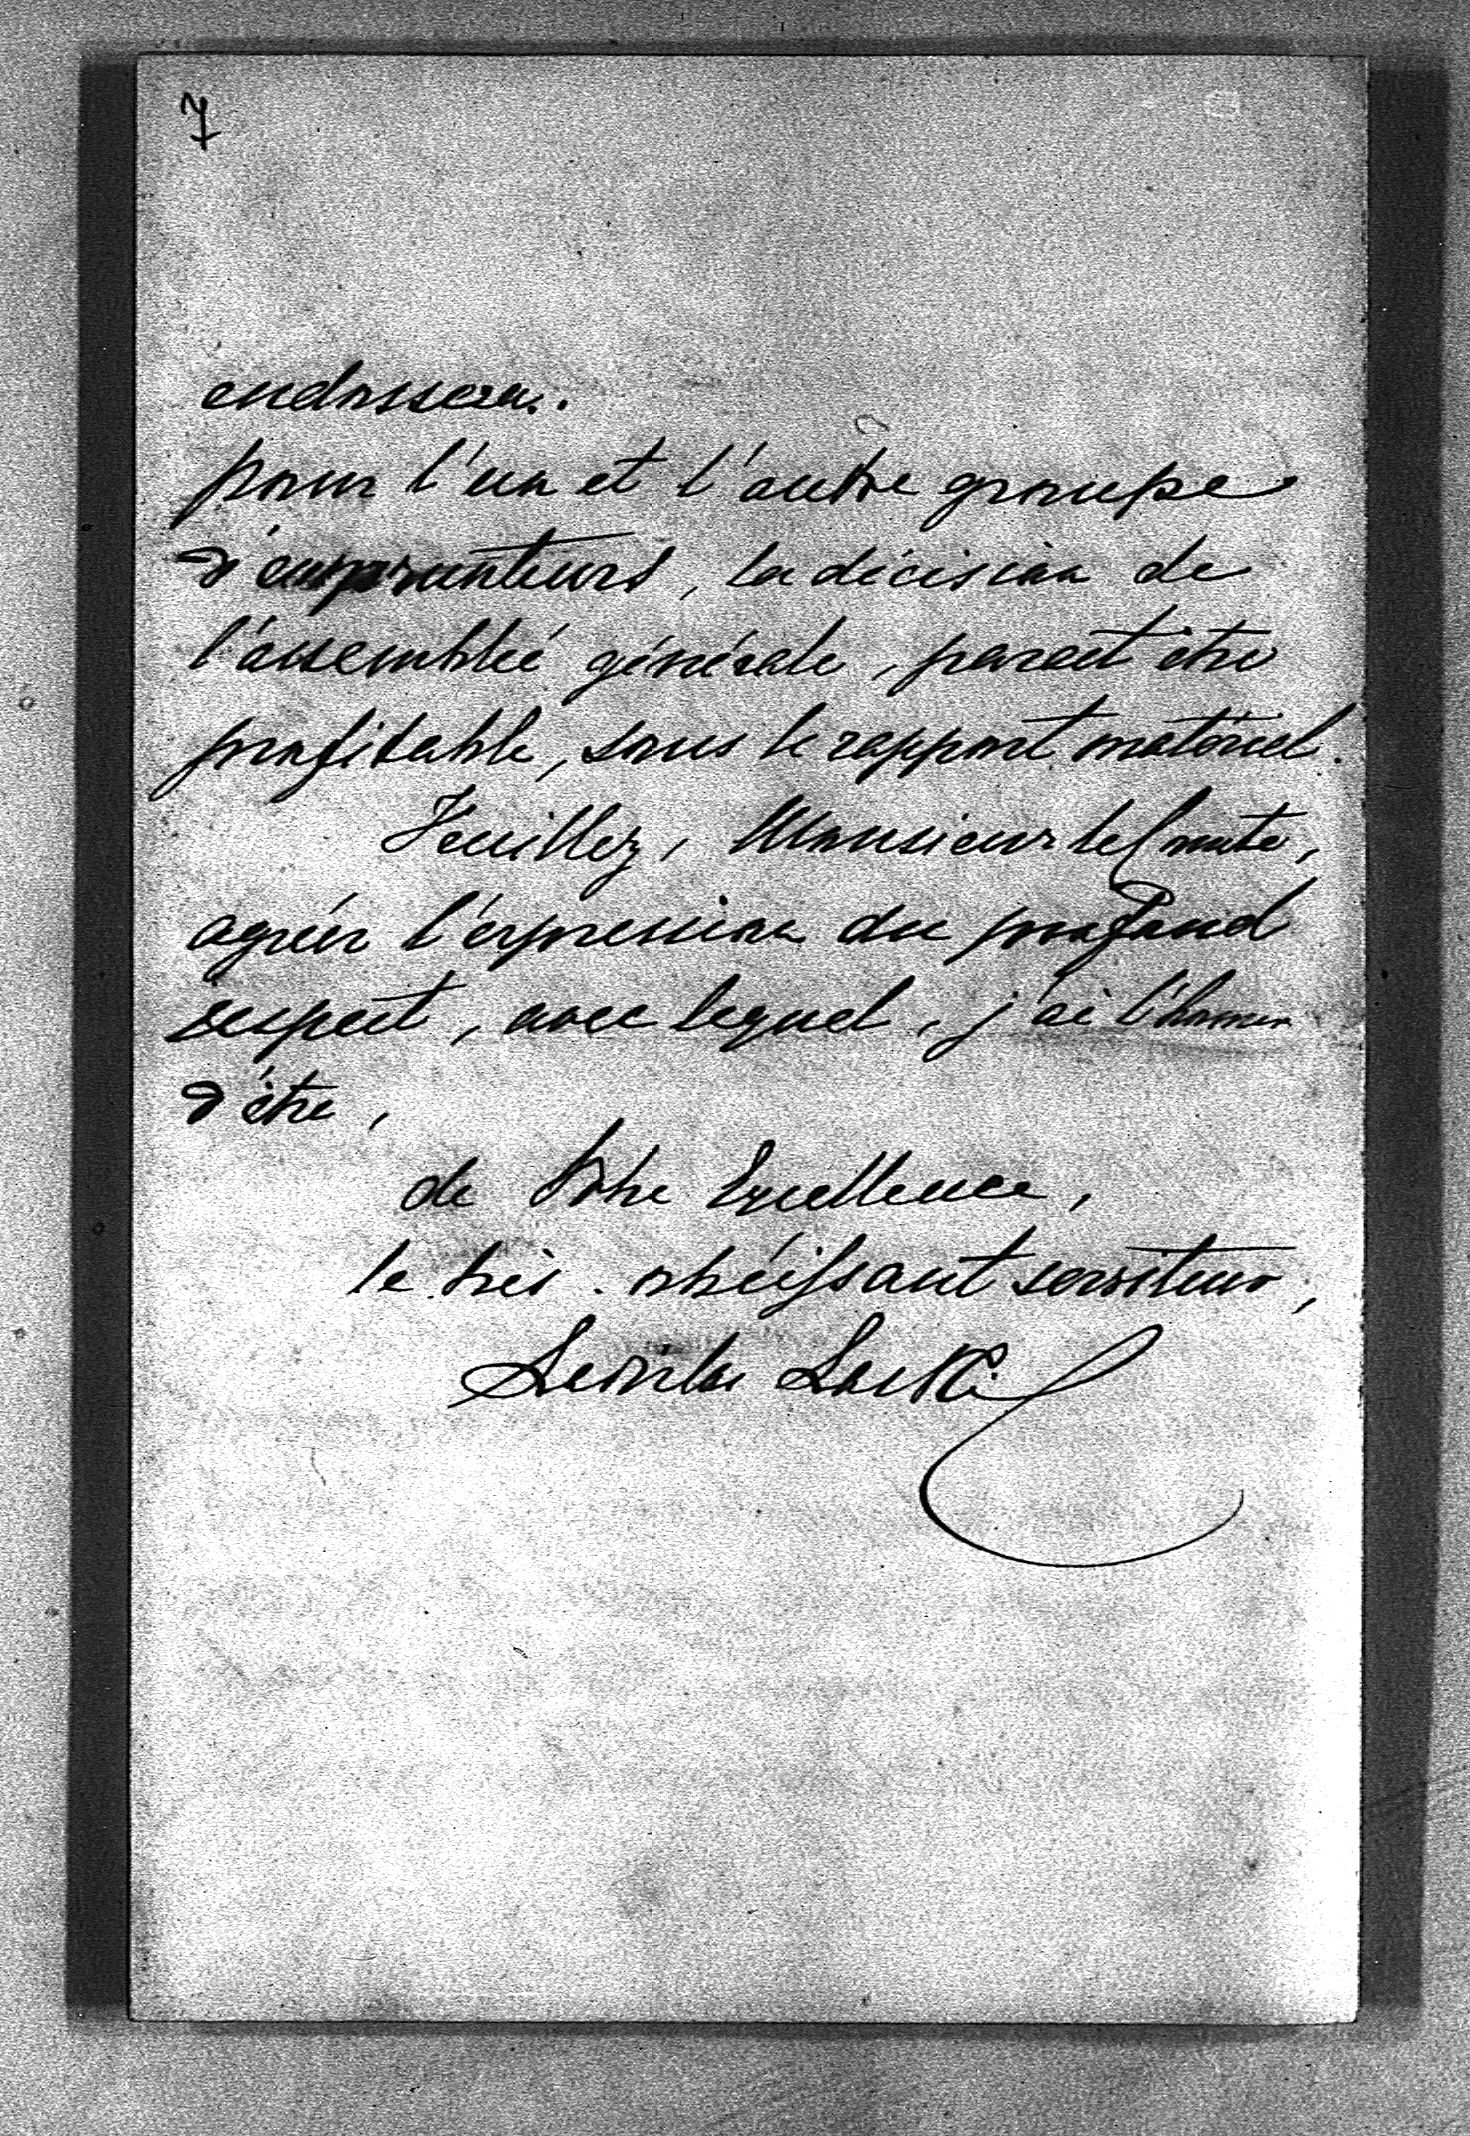 7
endossera.
pour l'un et l'autre groupe
d'emprunteurs, la décision de
l'assemblée générale, parait être
profitable, sous le rapport matériel.
Veuillez, Monsieur le Comte,
agréer l'expression du profond
respect, avec lequel, j'ai l'honneur
d'être,
de Votre Excellence,
le très obéissant serviteur,